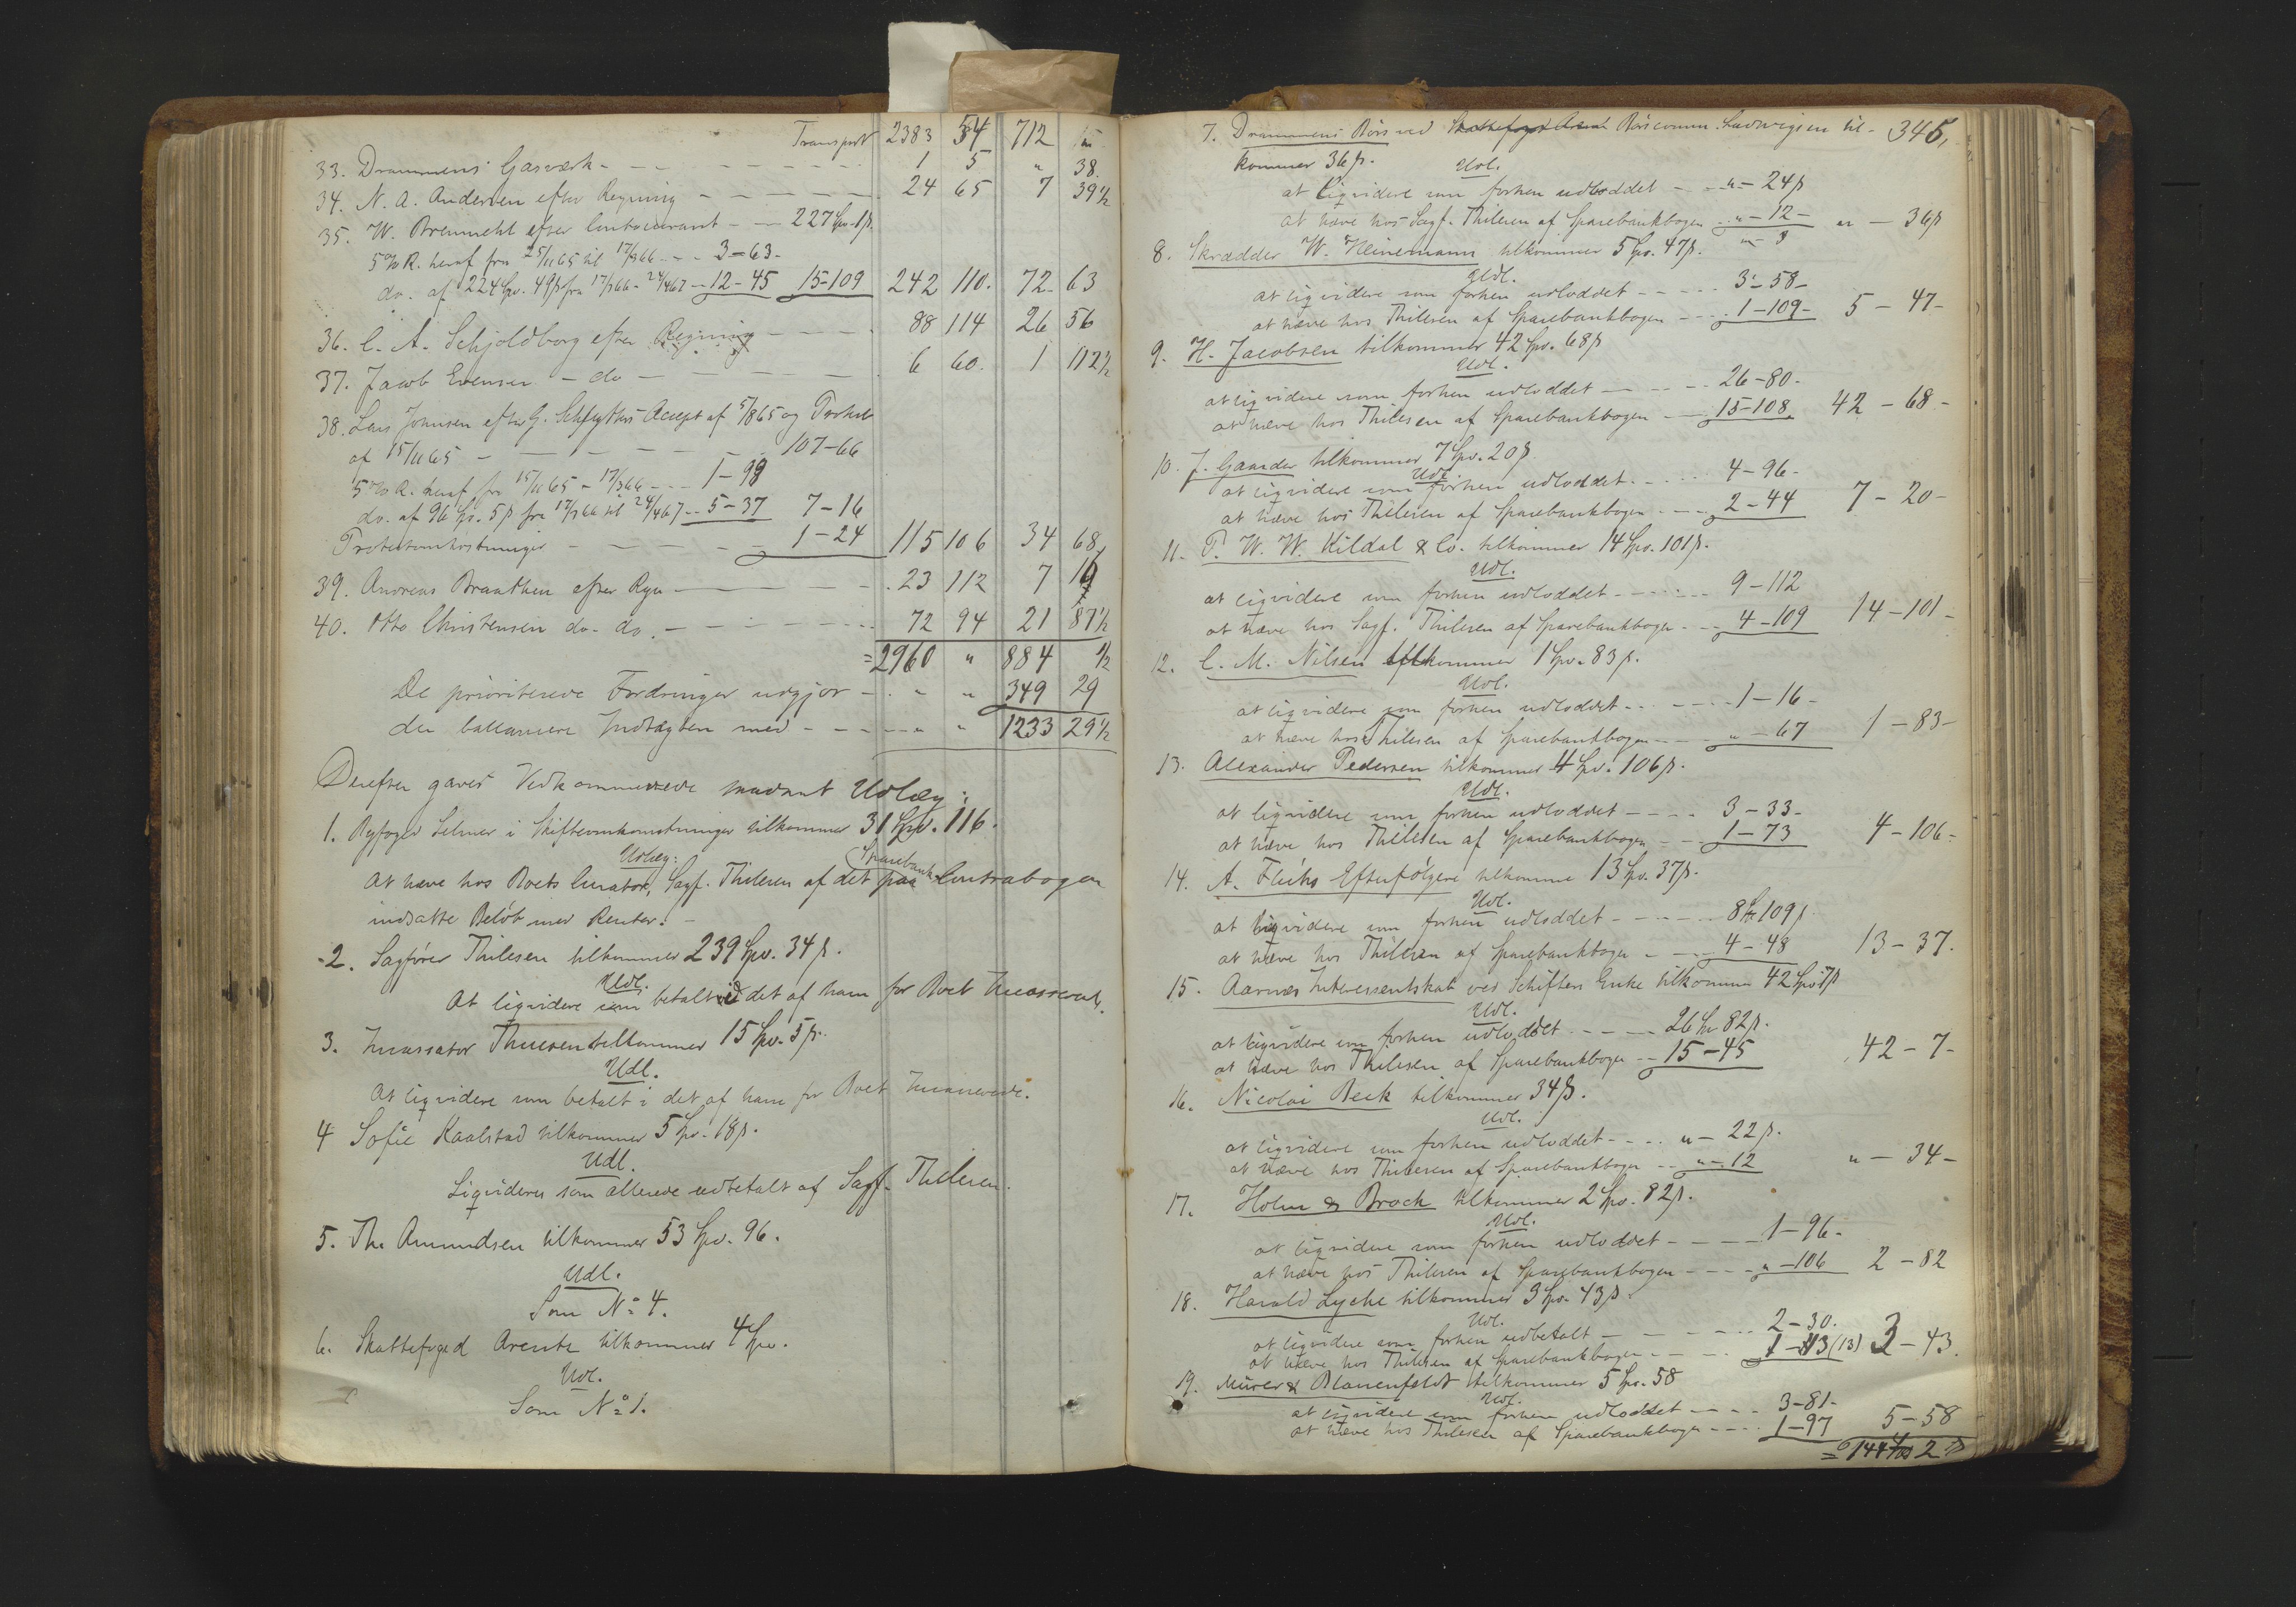 Transport 2383 54 712 "
33. Drammens Gasværk - - - 1 5 " 38.
34. N. A. Andersen efter Regning - - - 24 65 7 39 1/2
35. W. Bremmehl efter Contocourant - - 227 Spd. 1 β.
5 % R. heraf fra 25/11 65 til 17/3 66 - - - 3-63-
do. af 224 Spd. 49 β fra 17/3 66 - 24/4 67 - 12-45 15-109 242 110. 72- 63
36. C. A. Schjoldborg efter Regning - - - 88 114 26 56
37. Jacob Evensen - do - - - 6 60. 1 112 1/2
38. Lars Johnsen efter G. Accept af 5/8 65 og Protest
af 15/11 65 - - - 107-66
5 % R. heraf fra 15/11 65 - 17/3 66 - - - 1-98
do. af 96 Sp. 5 β fra 17/3 66 til 24/4 67 - - 5-37 7-16
Protestomkostninger - - - 1-24 115 106 34 68
39. Andreas Braathen efter Regn - - - 23 112 7 16
40. Otto Christensen do- do. - - - 72 94 21 87 1/2
= 2960 " 884 1/2
De prioriterede Fordringer udgjør - " " 349 29
der ballancere Indtægten med - - - " " 1233 29 1/2
Derefter gaves Vedkommende saadant Udlæg:
1. Byfoged Selmer i Skifteomkomstninger tilkommer 31 Spd. 116.
Udlæg:
At hæve hos Boets Curator, Sagf. Thilesen af det paa Sparebank Contrabogen
indsatte Beløb med Renter. -
2. Sagfører Thilesen tilkommer 239 Spd. 34 β.
Udl.
At liqvidere som betalt i det af ham for Boet Incasserede.
3. Incassator Thuesen tilkommer 15 Spd. 5 β.
Udl.
At liqvidere som betalt i det af ham for Boet Incasserede.
4 Sofie Kaalstad tilkommer 5 Spd. 18 β.
Udl.
Liqvideres som allerede udbetalt af Sagf. Thilesen.
5. Th. Amundsen tilkommer 53 Spd. 96.
Udl.
Som No 4.
6. Skattefoged Arentz tilkommer 4 Spd.
Udl.
Som No 1.
346,
7. Drammens Børs ved Skattefoged Arentz Børscomm. Ludwigsen til-
kommer 36 β.
Udl.
at liqvidere som forhen udloddet - - "- 24 β
at hæve hos Sagf. Thilesen af Sparebankbogen - "-12- " - 36 β
"- 3
8. Skrædder W. Heinemann tilkommer 5 Spd. 47 β.
Udl.
at liqvidere som forhen udloddet - - - 3-58-
at hæve hos Thilesen af Sparebankbogen - - - 1-109- 5 - 47-
9. H. Jacobsen tilkommer 42 Spd. 68 β
Udl.
at liqvidere som forhen udloddet - - - 26-80-
at hæve hos Thilesen af Sparebankbogen - - 15-108 42 - 68-
10. J. Gaarder tilkommer 7 Spd. 20 β
Udl.
at liqvidere som forhen udloddet - - - 4-96-
at hæve hos Thilesen af Sparebankbogen - - - 2-44 7 - 20-
11. P. W. W. Kildal & Co. tilkommer 14 Spd. 101 β.
Udl.
at liqvidere som forhen udloddet - - - 9-112
at hæve hos Sagf. Thilesen af Sparebankbogen - - 4-109 14-101-
12. C. M. Nilsen tilkommer 1 Spd. 83 β.
Udl.
at liqvidere som forhen udloddet - - - 1-16-
at hæve hos Thilesen af Sparebankbogen - - "-67 1-83-
13. Alexander Pedersen tilkommer 4 Spd. 106 β.
Udl.
at liqvidere som forhen udloddet - - - 3-33-
at hæve hos Thilesen af Sparebankbogen - - 1-73 4-106-
14. A. Flicks Efterfølgere tilkomme 13 Spd. 37 β.
Udl.
at liqvidere som forhen udloddet - - - 8 Sp 109 β
at hæve hos Thilesen af Sparebankbogen - - 4-48 13-37.
15. Aarnæs Interessentskab ved Schiøtters Enke tilkommer 42 Spd. 7 β
Udl.
at liqvidere som forhen udloddet - - - 26 Sp 82 β.
at hæve hos Thilesen af Sparebankbogen - - 15-45 42-7-
16. Nicolai Beck tilkommer 34 β.
Udl.
at liqvidere som forhen udloddet - - - "- 22 β.
at hæve hos Thilesen af Sparebankbogen - - "-12 "-34-
17. Holm & Brock tilkommer 2 Spd. 82 β.
Udl.
at liqvidere som forhen udloddet - - - 1-96-
at hæve hos Thilesen af Sparebankbogen - - - "-106 2-82
18. Harald Lyche tilkommer 3 Spd. 43 β.
Udl.
at liqvidere som forhen udbetalt - - - 2-30.
at hæve hos Thilesen af Sparebankbogen - - 1-13 (13) 3-43.
19. Murer & Blauenfeldt tilkommer 5 Spd. 58
Udl.
at liqvidere som forhen udloddet - - - 3-81-
at hæve hos Thilesen af Sparebankbogen - - - 1-97 5-58
= 144 Spd 2 β